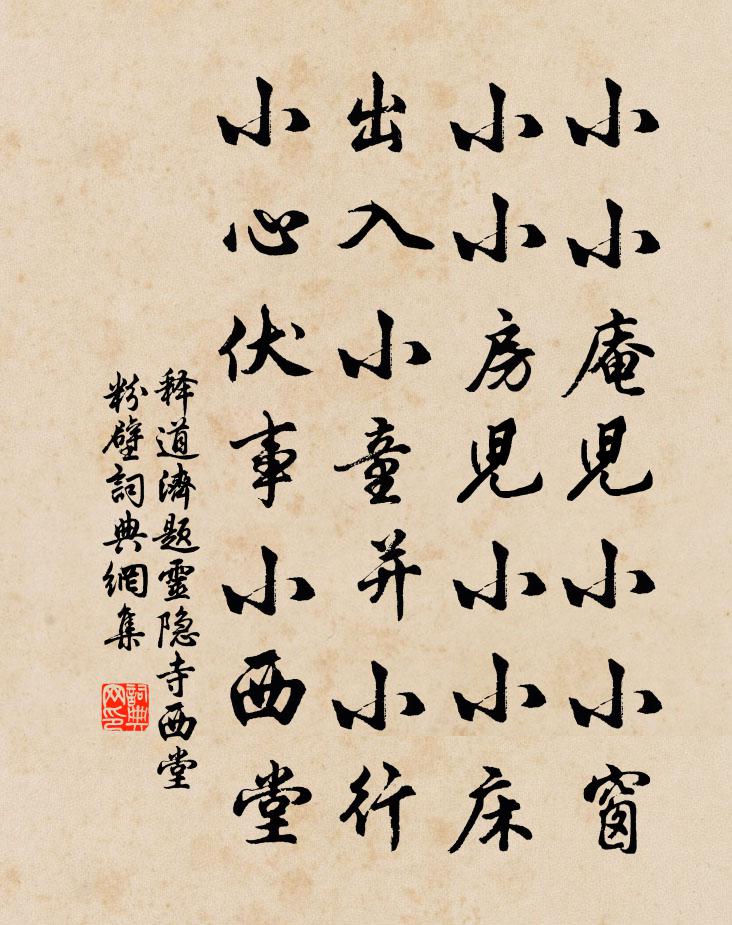 小小庵児小小窗
小小房児小小床
出入小童并小行
小心伏事小西堂
释道濟題靈隐寺西堂
粉壁詞典網集
詞典
网印